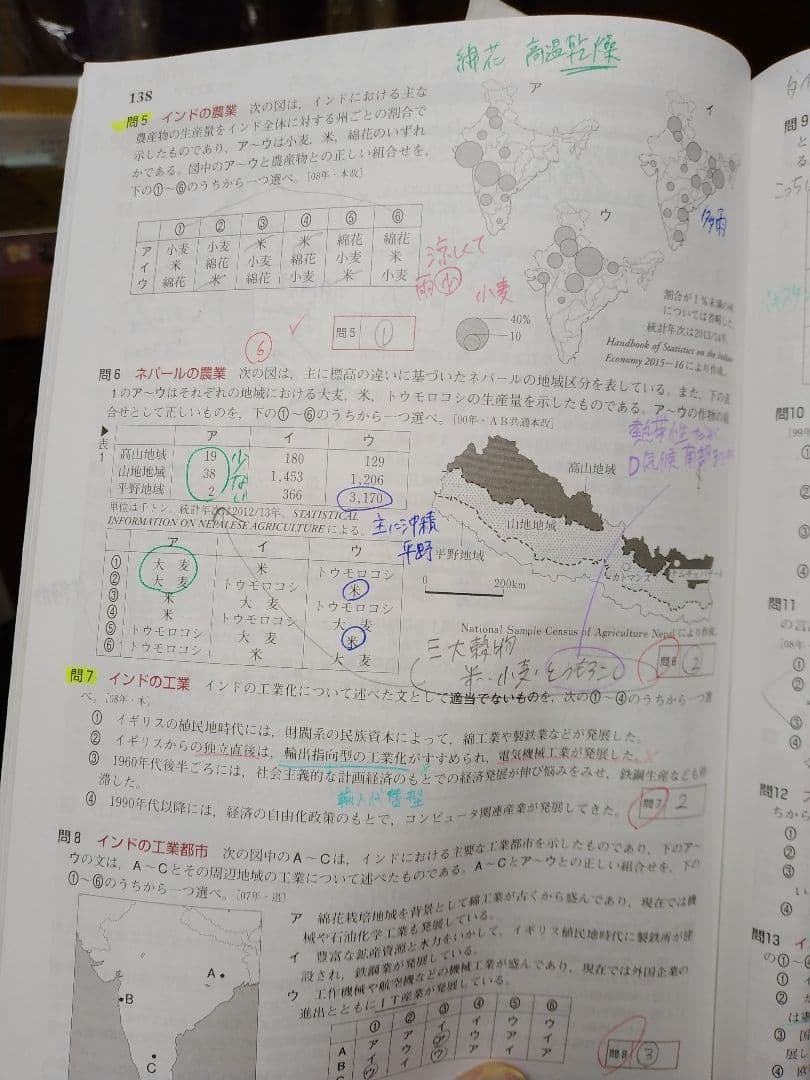 綿花 高温乾燥
138
問5 インドの農業 次の図は，インドにおける主な
農産物の生産量をインド全体に対する州ごとの割合で
示したものであり，ア～ウは小麦，米，綿花のいずれ
かである。図中のア～ウと農産物との正しい組合せを，
下の①～⑥のうちから一つ選べ。［08年・本改］
ア
イ
ウ
多雨
① ② ③ ④ ⑤ ⑥
ア 小麦 小麦 米 米 綿花 綿花
イ 米 綿花 小麦 綿花 小麦 米
ウ 綿花 米 綿花 小麦 米 小麦
涼しくて
雨少
小麦
40%
10
割合が1％未満の州
については省略した
統計年次は2013/14年。
Handbook of Statistics on the Indian
Economy 2015－16により作成。
⑥
問5 ①
問6 ネパールの農業 次の図は，主に標高の違いに基づいたネパールの地域区分を表している。また，下の表
1のア～ウはそれぞれの地域における大麦，米，トウモロコシの生産量を示したものである。ア～ウの作物の組
合せとして正しいものを，下の①～⑥のうちから一つ選べ。［00年・AB共通本改］
▶表1
ア イ ウ
高山地域 19 180 129
山地地域 38 1,453 1,206
平野地域 2 366 3,170
少ない
単位は千トン。統計年次は2012/13年。STATISTICAL
INFORMATION ON NEPALESE AGRICULTUREによる。
主に沖積
平野
高山地域
山地地域
平野地域
カトマンズ
ナムチェバザール
0 200km
National Sample Census of Agriculture Nepalにより作成。
ア イ ウ
① 大麦 米 トウモロコシ
② 大麦 トウモロコシ 米
③ 米 大麦 トウモロコシ
④ 米 トウモロコシ 大麦
⑤ トウモロコシ 大麦 米
⑥ トウモロコシ 米 大麦
三大穀物
米・小麦・とうもろこし
問6 ②
問7 インドの工業 インドの工業化について述べた文として適当でないものを，次の①～④のうちから一つ選
べ。［08年・本］
① イギリスの植民地時代には，財閥系の民族資本によって，綿工業や製鉄業などが発展した。
② イギリスからの独立直後は，輸出指向型の工業化がすすめられ，電気機械工業が発展した。
③ 1960年代後半ごろには，社会主義的な計画経済のもとでの経済発展が伸び悩みをみせ，鉄鋼生産なども停
滞した。
輸入代替型
④ 1990年代以降には，経済の自由化政策のもとで，コンピュータ関連産業が発展してきた。
問7 2
問8 インドの工業都市 次の図中のA～Cは，インドにおける主要な工業都市を示したものであり，下のア～
ウの文は，A～Cとその周辺地域の工業について述べたものである。A～Cとア～ウとの正しい組合せを，下の
①～⑥のうちから一つ選べ。［07年・追］
ア 綿花栽培地域を背景として綿工業が古くから盛んであり，現在では機
械や石油化学工業も発展している。
イ 豊富な鉱産資源と水力をいかして，イギリス植民地時代に製鉄所が建
設され，鉄鋼業が発展している。
ウ 工作機械や航空機などの機械工業が盛んであり，現在では外国企業の
進出とともにIT産業が発展している。
A
B
C
① ② ③ ④ ⑤ ⑥
A ア ア イ イ ウ ウ
B イ ウ ア ウ ア イ
問8 ③
問9
問10
問11
問12
問13